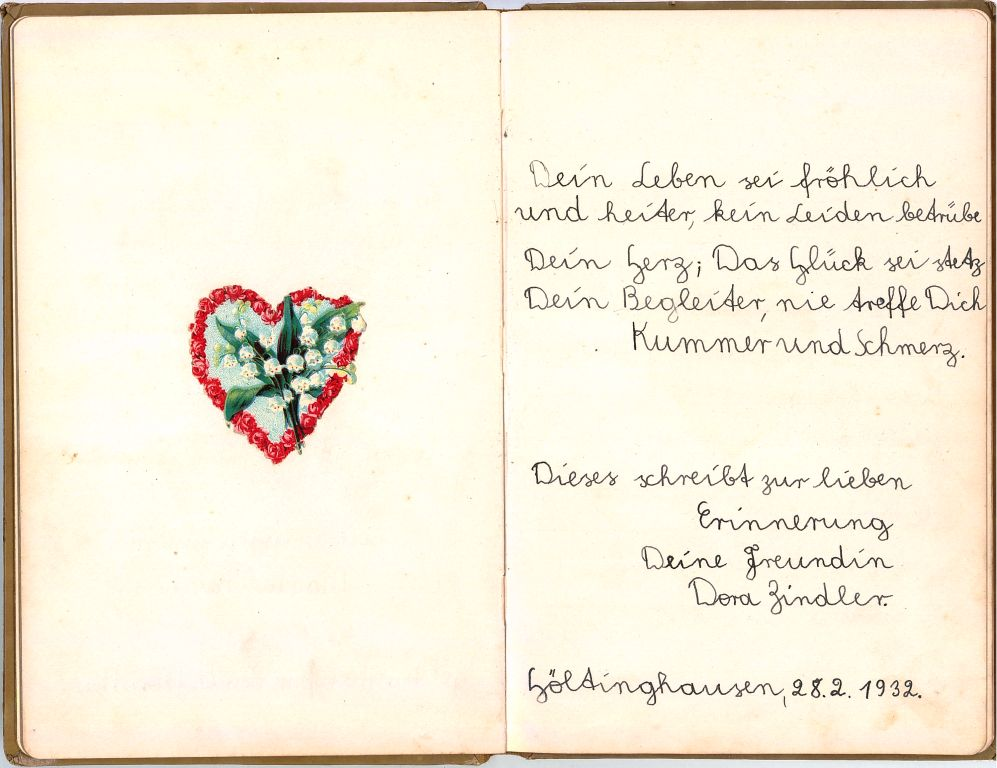 Dein Leben sei fröhlich
und heiter, kein Leiden betrübe
Dein Herz; Das Glück sei stetz
Dein Begleiter, nie treffe Dich
Kummer und Schmerz.
Dieses schreibt zur lieben
Erinnerung
Deine Freundin
Dora Zindler.
Höltinghausen, 28.2. 1932.